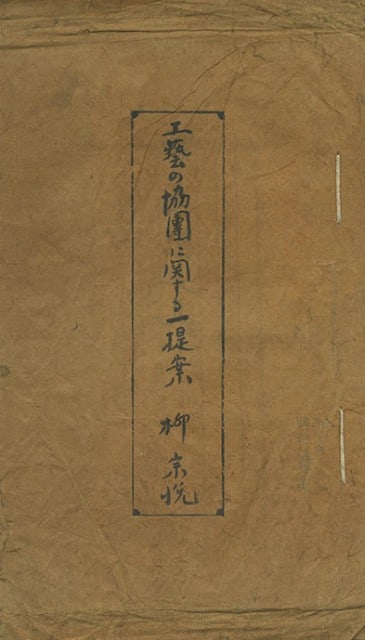 工藝の協團に関する一提案 柳宗悦